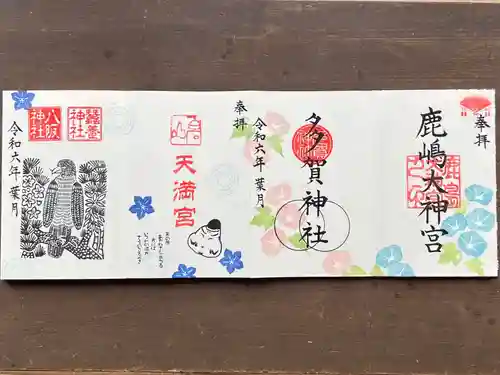 奉拝
鹿嶋大神宮
奉拝
多賀神社
令和六年 葉月
天満宮
蠶養神社
八坂神社
令和六年 葉月